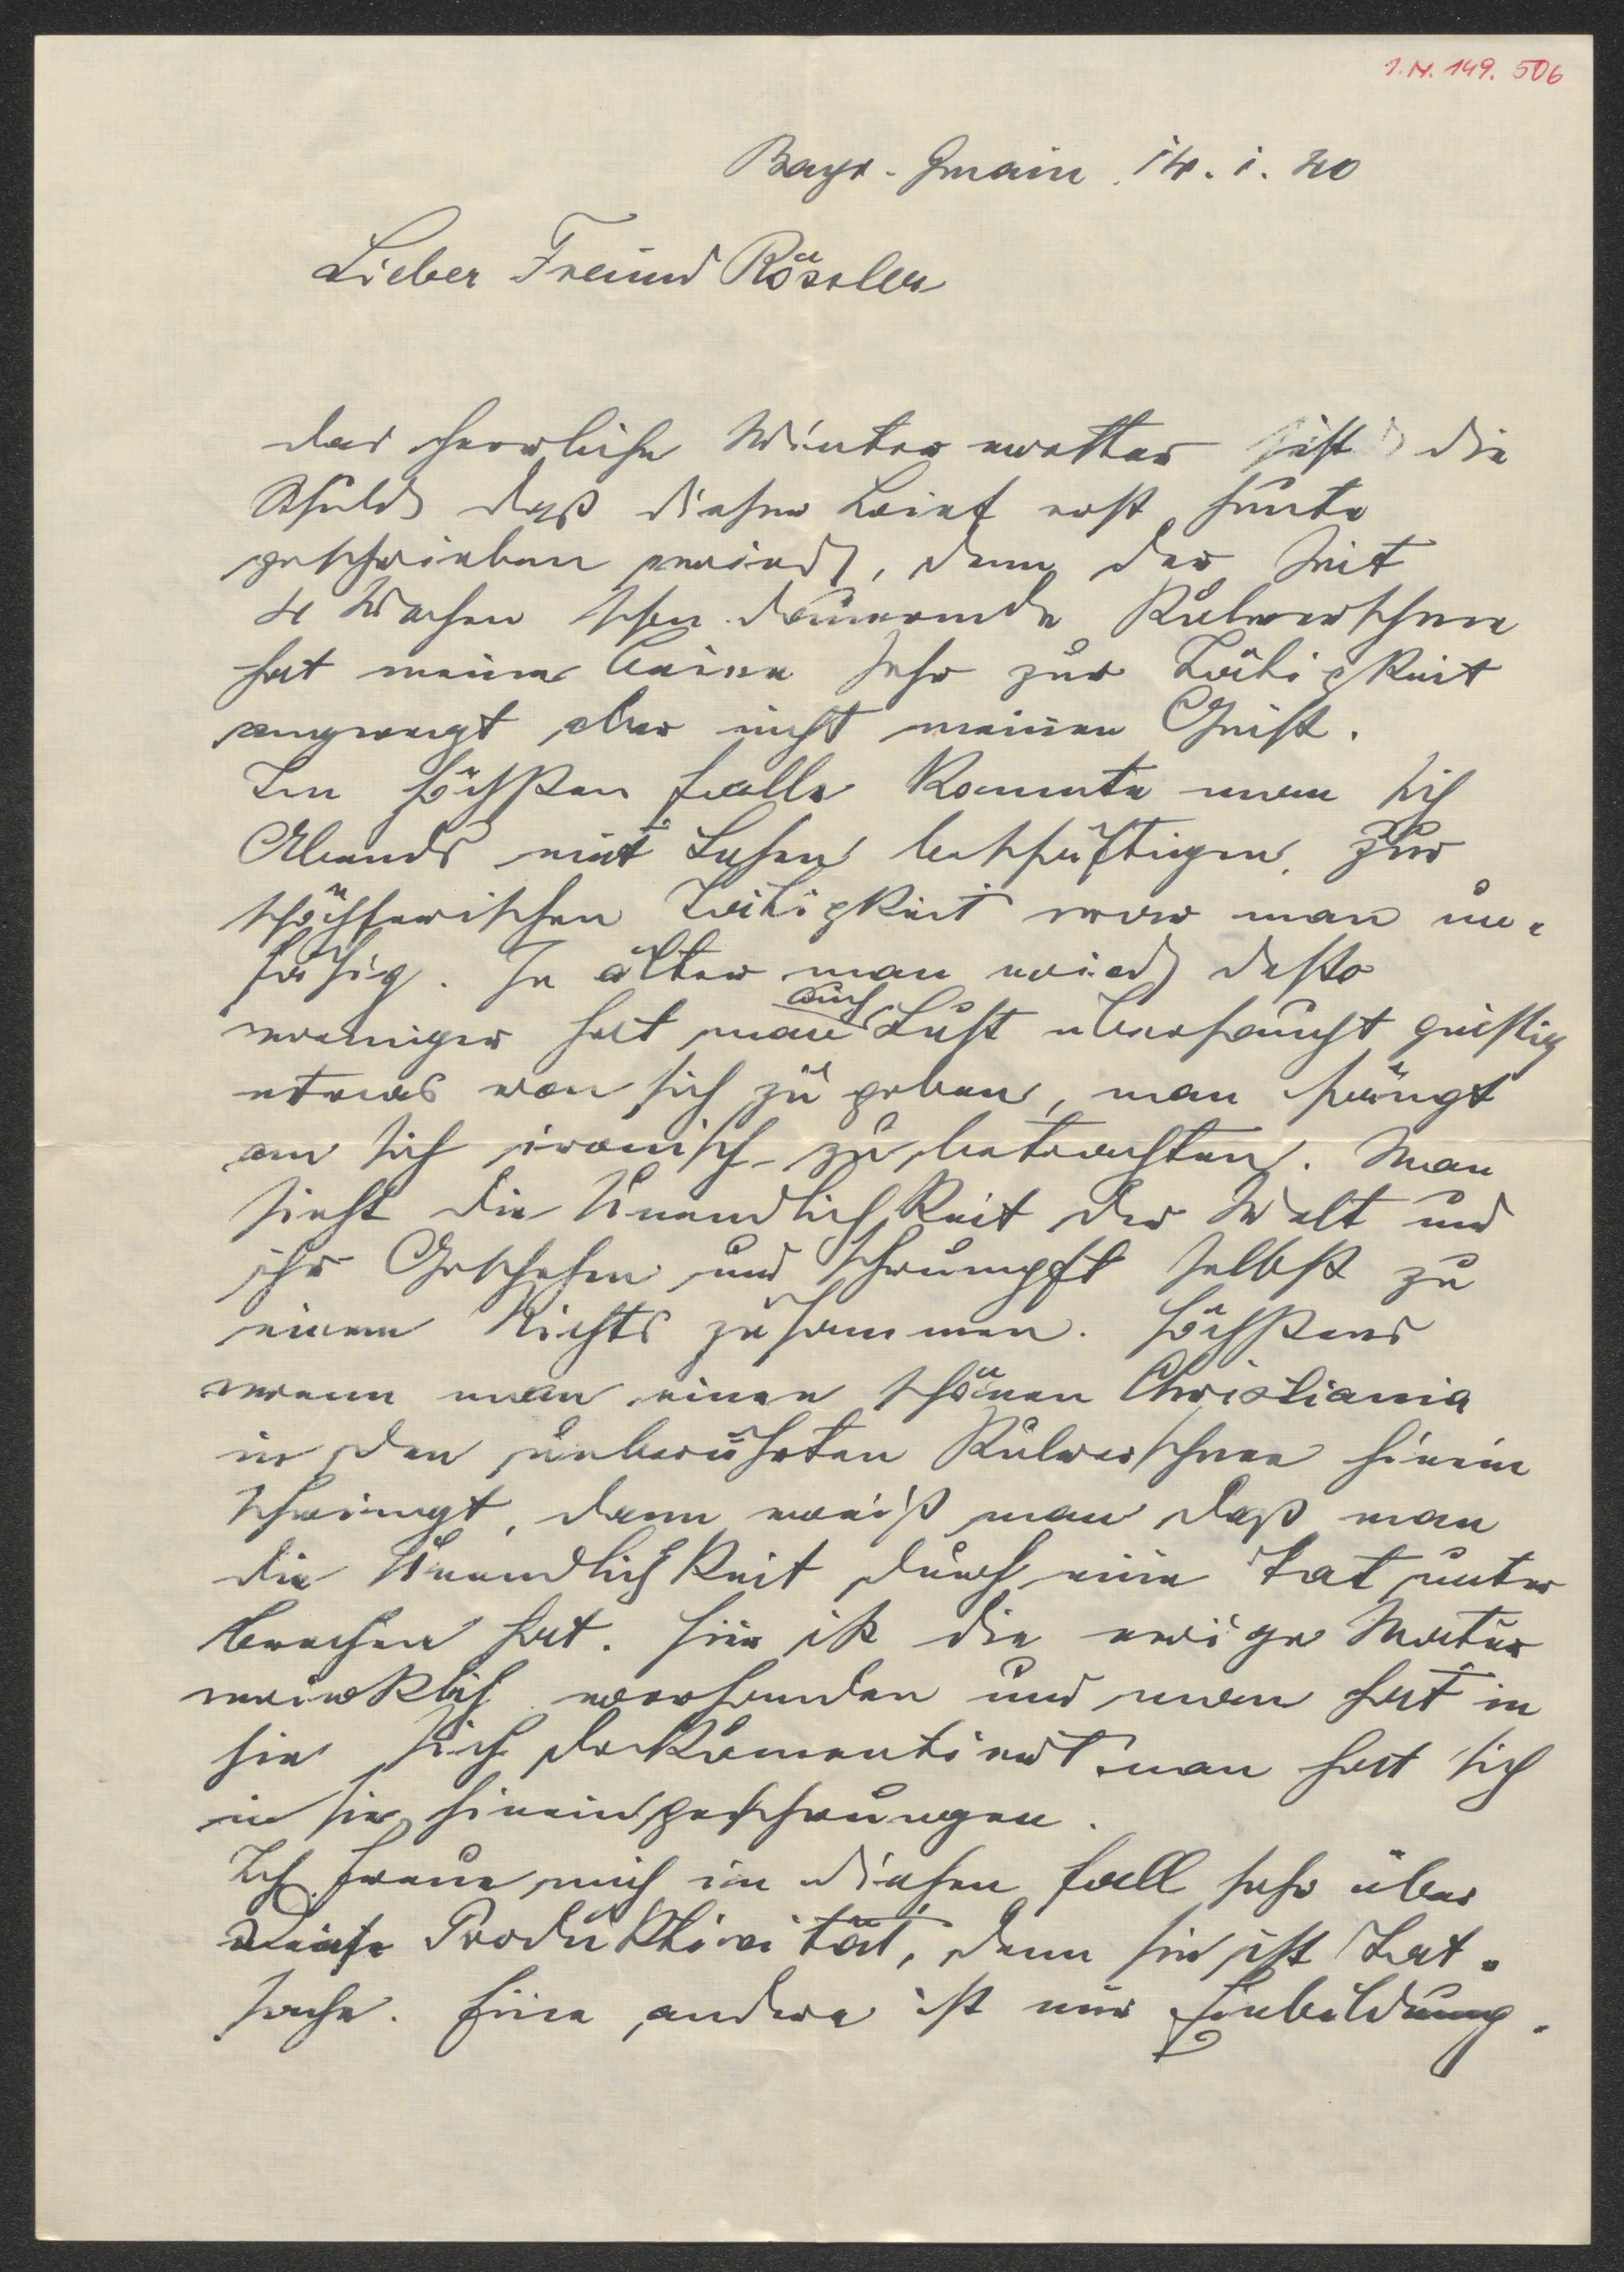 I.N. 149.506
Bayr. Gmain. 14.1.40
Lieber Freund Rössler
das herrliche Winterwetter ist die
Schuld daß dieser Brief erst heute
geschrieben wird, denn der seit
4 Wochen schon dauernde Pulverschnee
hat meine Beine sehr zur Tätigkeit
angeregt aber nicht meinen Geist.
Im höchsten Falle konnte man sich
Abends mit Lesen beschäftigen. Zur
schöpferischen Tätigkeit war man un-
fähig. Je älter man wird desto
weniger hat man auch Lust überhaupt geistig
etwas von sich zu geben, man fängt
an sich ironisch zu betrachten. Man
sieht die Unendlichkeit der Welt und
ihr Geschehen und schrumpft selbst zu
einem Nichts zusammen. Höchstens
wenn man einen schönen Christiania
in den unberührten Pulverschnee hinein
schwingt, dann weiß man daß man
die Unendlichkeit durch eine Tat unter
brochen hat. Hier ist die ewige Natur
wirklich vorhanden und man hat in
sie sich dokumentiert man hat sich
in sie hineingeschwungen.
Ich freue mich in diesem Fall sehr über
Produktivität, denn sie ist Tat-
sache. Eine andere ist nur Einbildung.